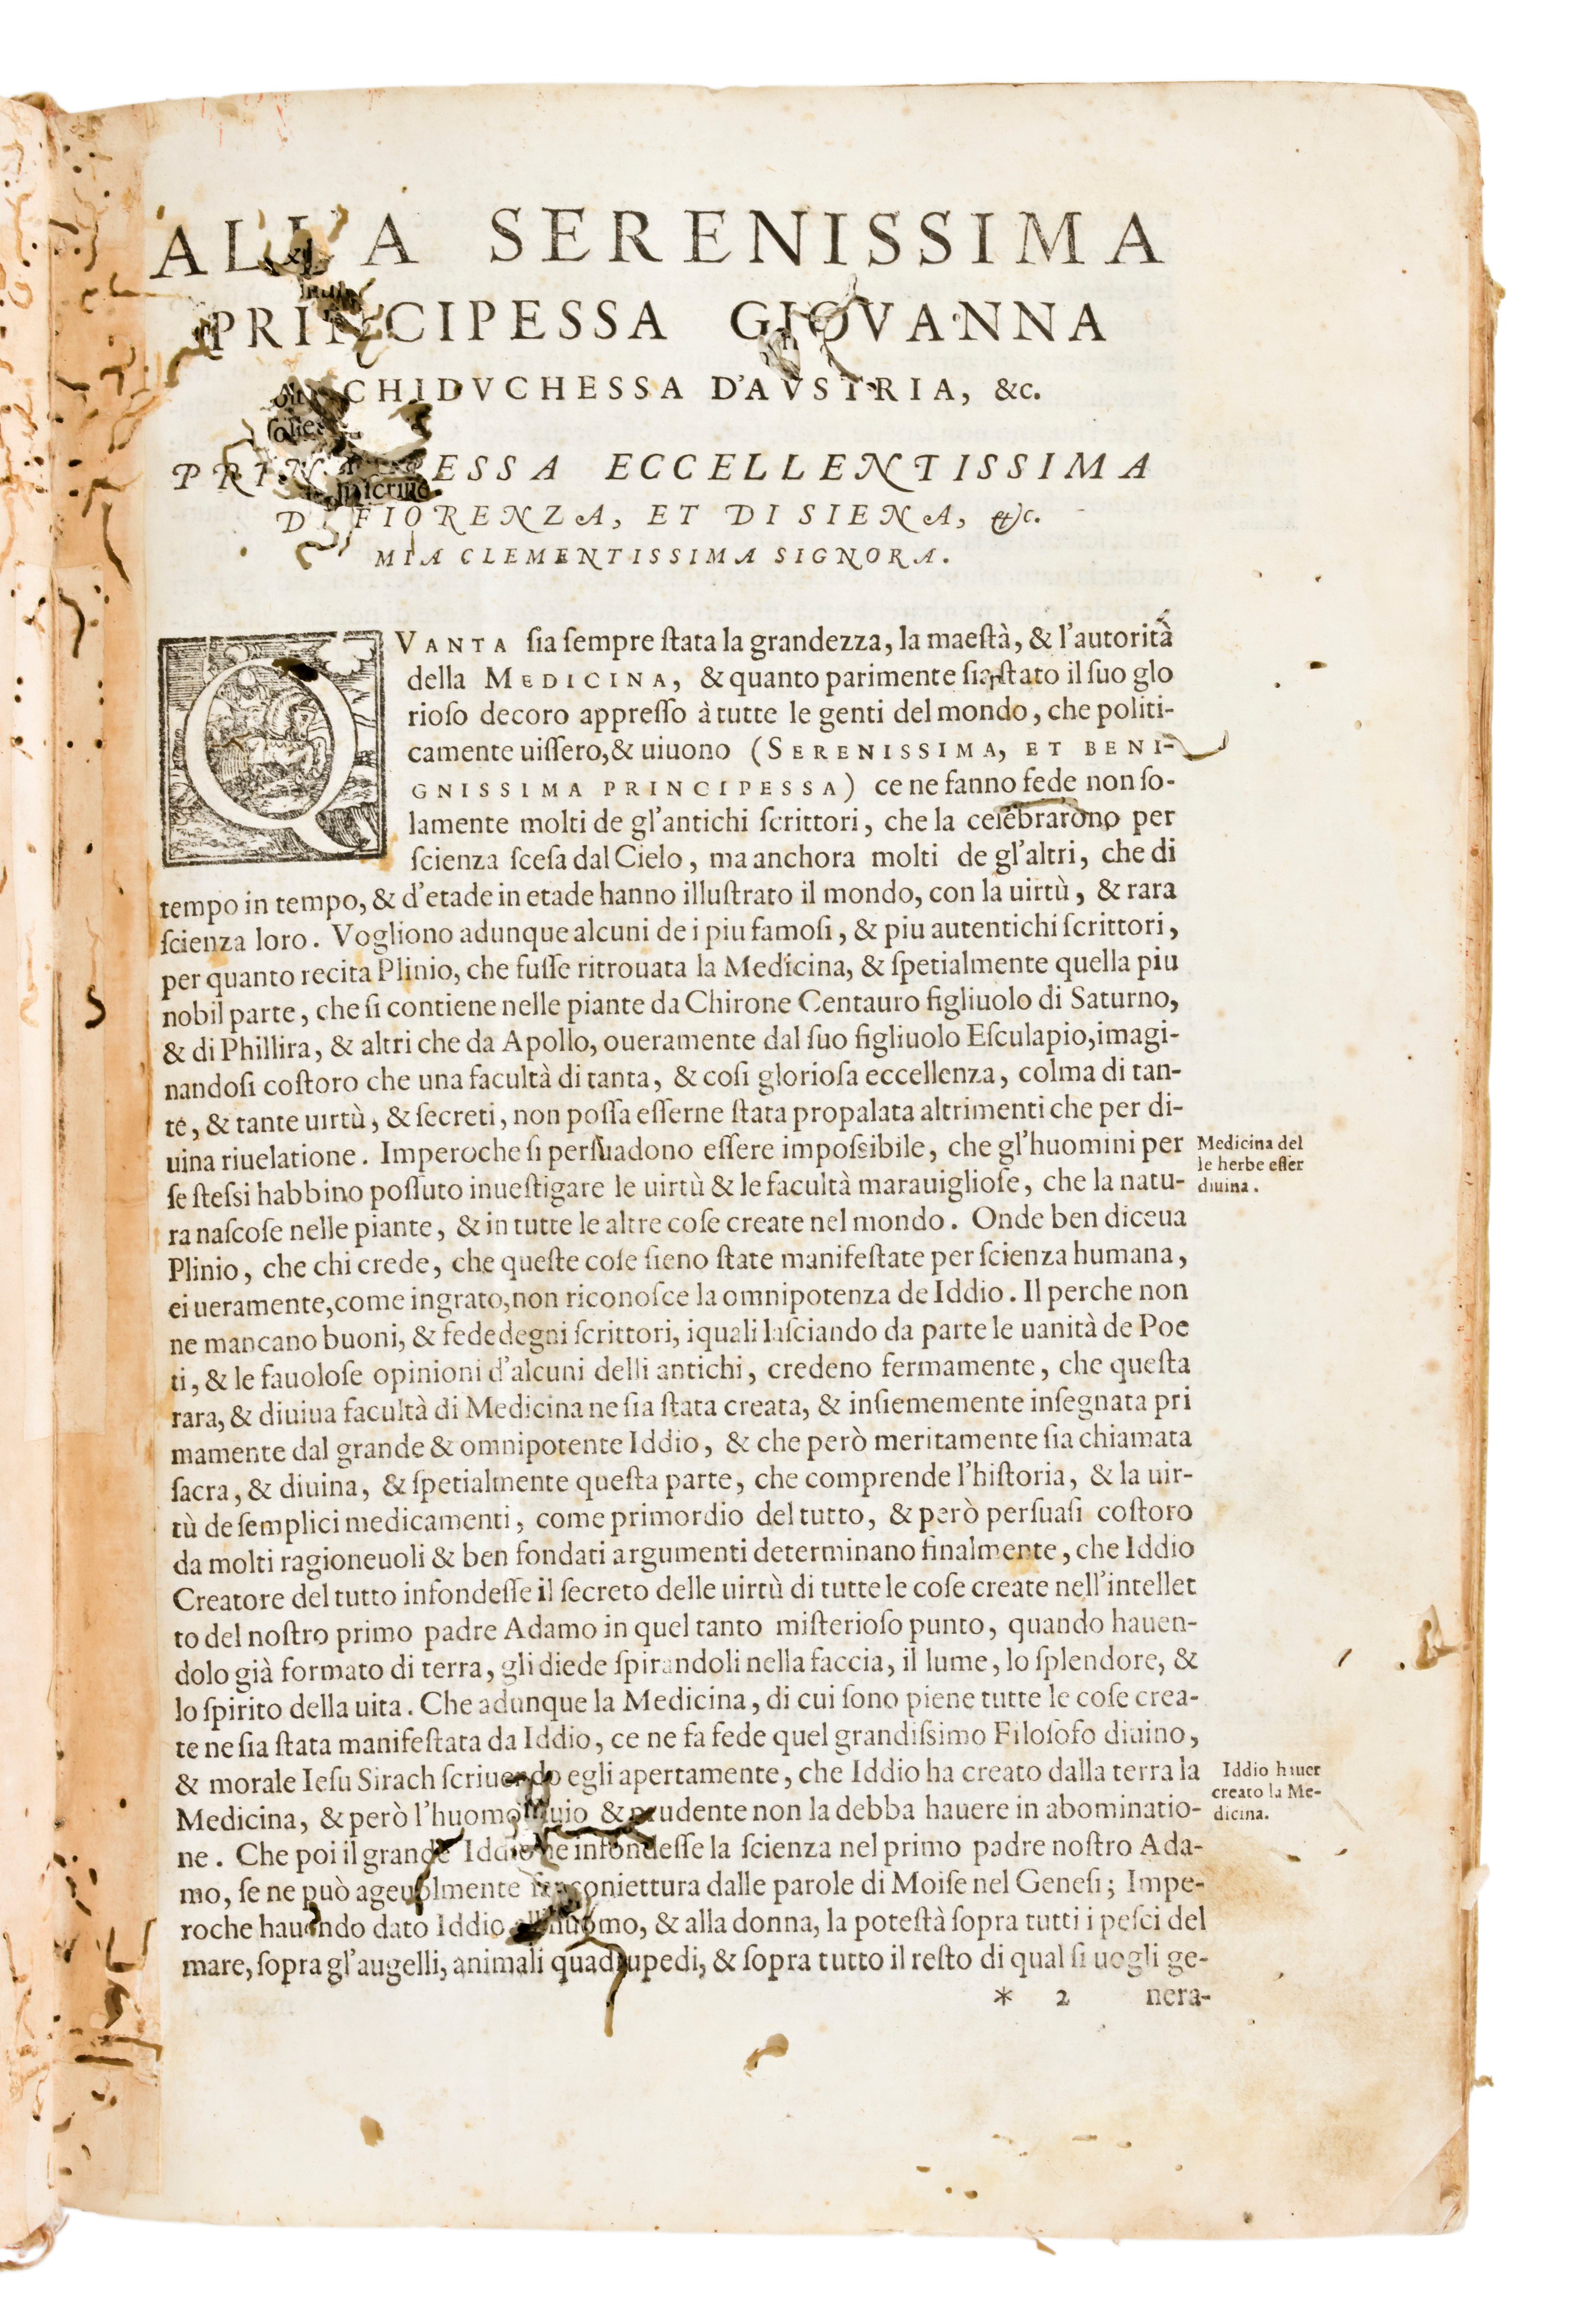 ALLA SERENISSIMA
PRINCIPESSA GIOVANNA
ARCHIDVCHESSA D'AVSTRIA, &c.
PRINCIPESSA ECCELLENTISSIMA
DI FIORENZA, ET DI SIENA, &c.
MIA CLEMENTISSIMA SIGNORA.
QVANTA ſia ſempre ſtata la grandezza, la maeſtà, & l'autorità
della MEDICINA, & quanto parimente ſia ſtato il ſuo glo
rioſo decoro appreſſo à tutte le genti del mondo, che politi-
camente uiſſero, & uiuono (SERENISSIMA, ET BENI-
GNISSIMA PRINCIPESSA) ce ne fanno fede non ſo-
lamente molti de gl'antichi ſcrittori, che la celebrarono per
ſcienza ſceſa dal Cielo, ma anchora molti de gl'altri, che di
tempo in tempo, & d'etade in etade hanno illuſtrato il mondo, con la uirtù, & rara
ſcienza loro. Vogliono adunque alcuni de i piu famoſi, & piu autentichi ſcrittori,
per quanto recita Plinio, che fuſſe ritrouata la Medicina, & ſpetialmente quella piu
nobil parte, che ſi contiene nelle piante da Chirone Centauro figliuolo di Saturno,
& di Phillira, & altri che da Apollo, oueramente dal ſuo figliuolo Eſculapio, imagi-
nandoſi coſtoro che una facultà di tanta, & coſi glorioſa eccellenza, colma di tan-
te, & tante uirtù, & ſecreti, non poſſa eſſerne ſtata propalata altrimenti che per di-
uina riuelatione. Imperoche ſi perſuadono eſſere impoſsibile, che gl'huomini per
Medicina del
le herbe eſſer
diuina.
ſe ſteſsi habbino poſſuto inueſtigare le uirtù & le facultà marauiglioſe, che la natu-
ra naſcoſe nelle piante, & in tutte le altre coſe create nel mondo. Onde ben diceua
Plinio, che chi crede, che queſte coſe ſieno ſtate manifeſtate per ſcienza humana,
ei ueramente, come ingrato, non riconoſce la omnipotenza de Iddio. Il perche non
ne mancano buoni, & fededegni ſcrittori, iquali laſciando da parte le uanità de Poe
ti, & le fauoloſe opinioni d'alcuni delli antichi, credeno fermamente, che queſta
rara, & diuiua facultà di Medicina ne ſia ſtata creata, & inſiememente inſegnata pri
mamente dal grande & omnipotente Iddio, & che però meritamente ſia chiamata
ſacra, & diuina, & ſpetialmente queſta parte, che comprende l'hiſtoria, & la uir-
tù de ſemplici medicamenti, come primordio del tutto, & però perſuaſi coſtoro
da molti ragioneuoli & ben fondati argumenti determinano finalmente, che Iddio
Creatore del tutto infondeſſe il ſecreto delle uirtù di tutte le coſe create nell'intellet
to del noſtro primo padre Adamo in quel tanto miſterioſo punto, quando hauen-
dolo già formato di terra, gli diede ſpirandoli nella faccia, il lume, lo ſplendore, &
lo ſpirito della uita. Che adunque la Medicina, di cui ſono piene tutte le coſe crea-
te ne ſia ſtata manifeſtata da Iddio, ce ne fa fede quel grandiſsimo Filoſofo diuino,
& morale Ieſu Sirach ſcriuendo egli apertamente, che Iddio ha creato dalla terra la
Iddio hauer
creato la Me-
dicina.
Medicina, & però l'huomo & prudente non la debba hauere in abominatio-
ne. Che poi il grande Iddio ne infondeſſe la ſcienza nel primo padre noſtro Ada-
mo, ſe ne può ageuolmente coniettura dalle parole di Moiſe nel Geneſi; Impe-
roche hauendo dato Iddio all'huomo, & alla donna, la poteſtà ſopra tutti i peſci del
mare, ſopra gl'augelli, animali quadrupedi, & ſopra tutto il reſto di qual ſi uogli ge-
* 2 nera-